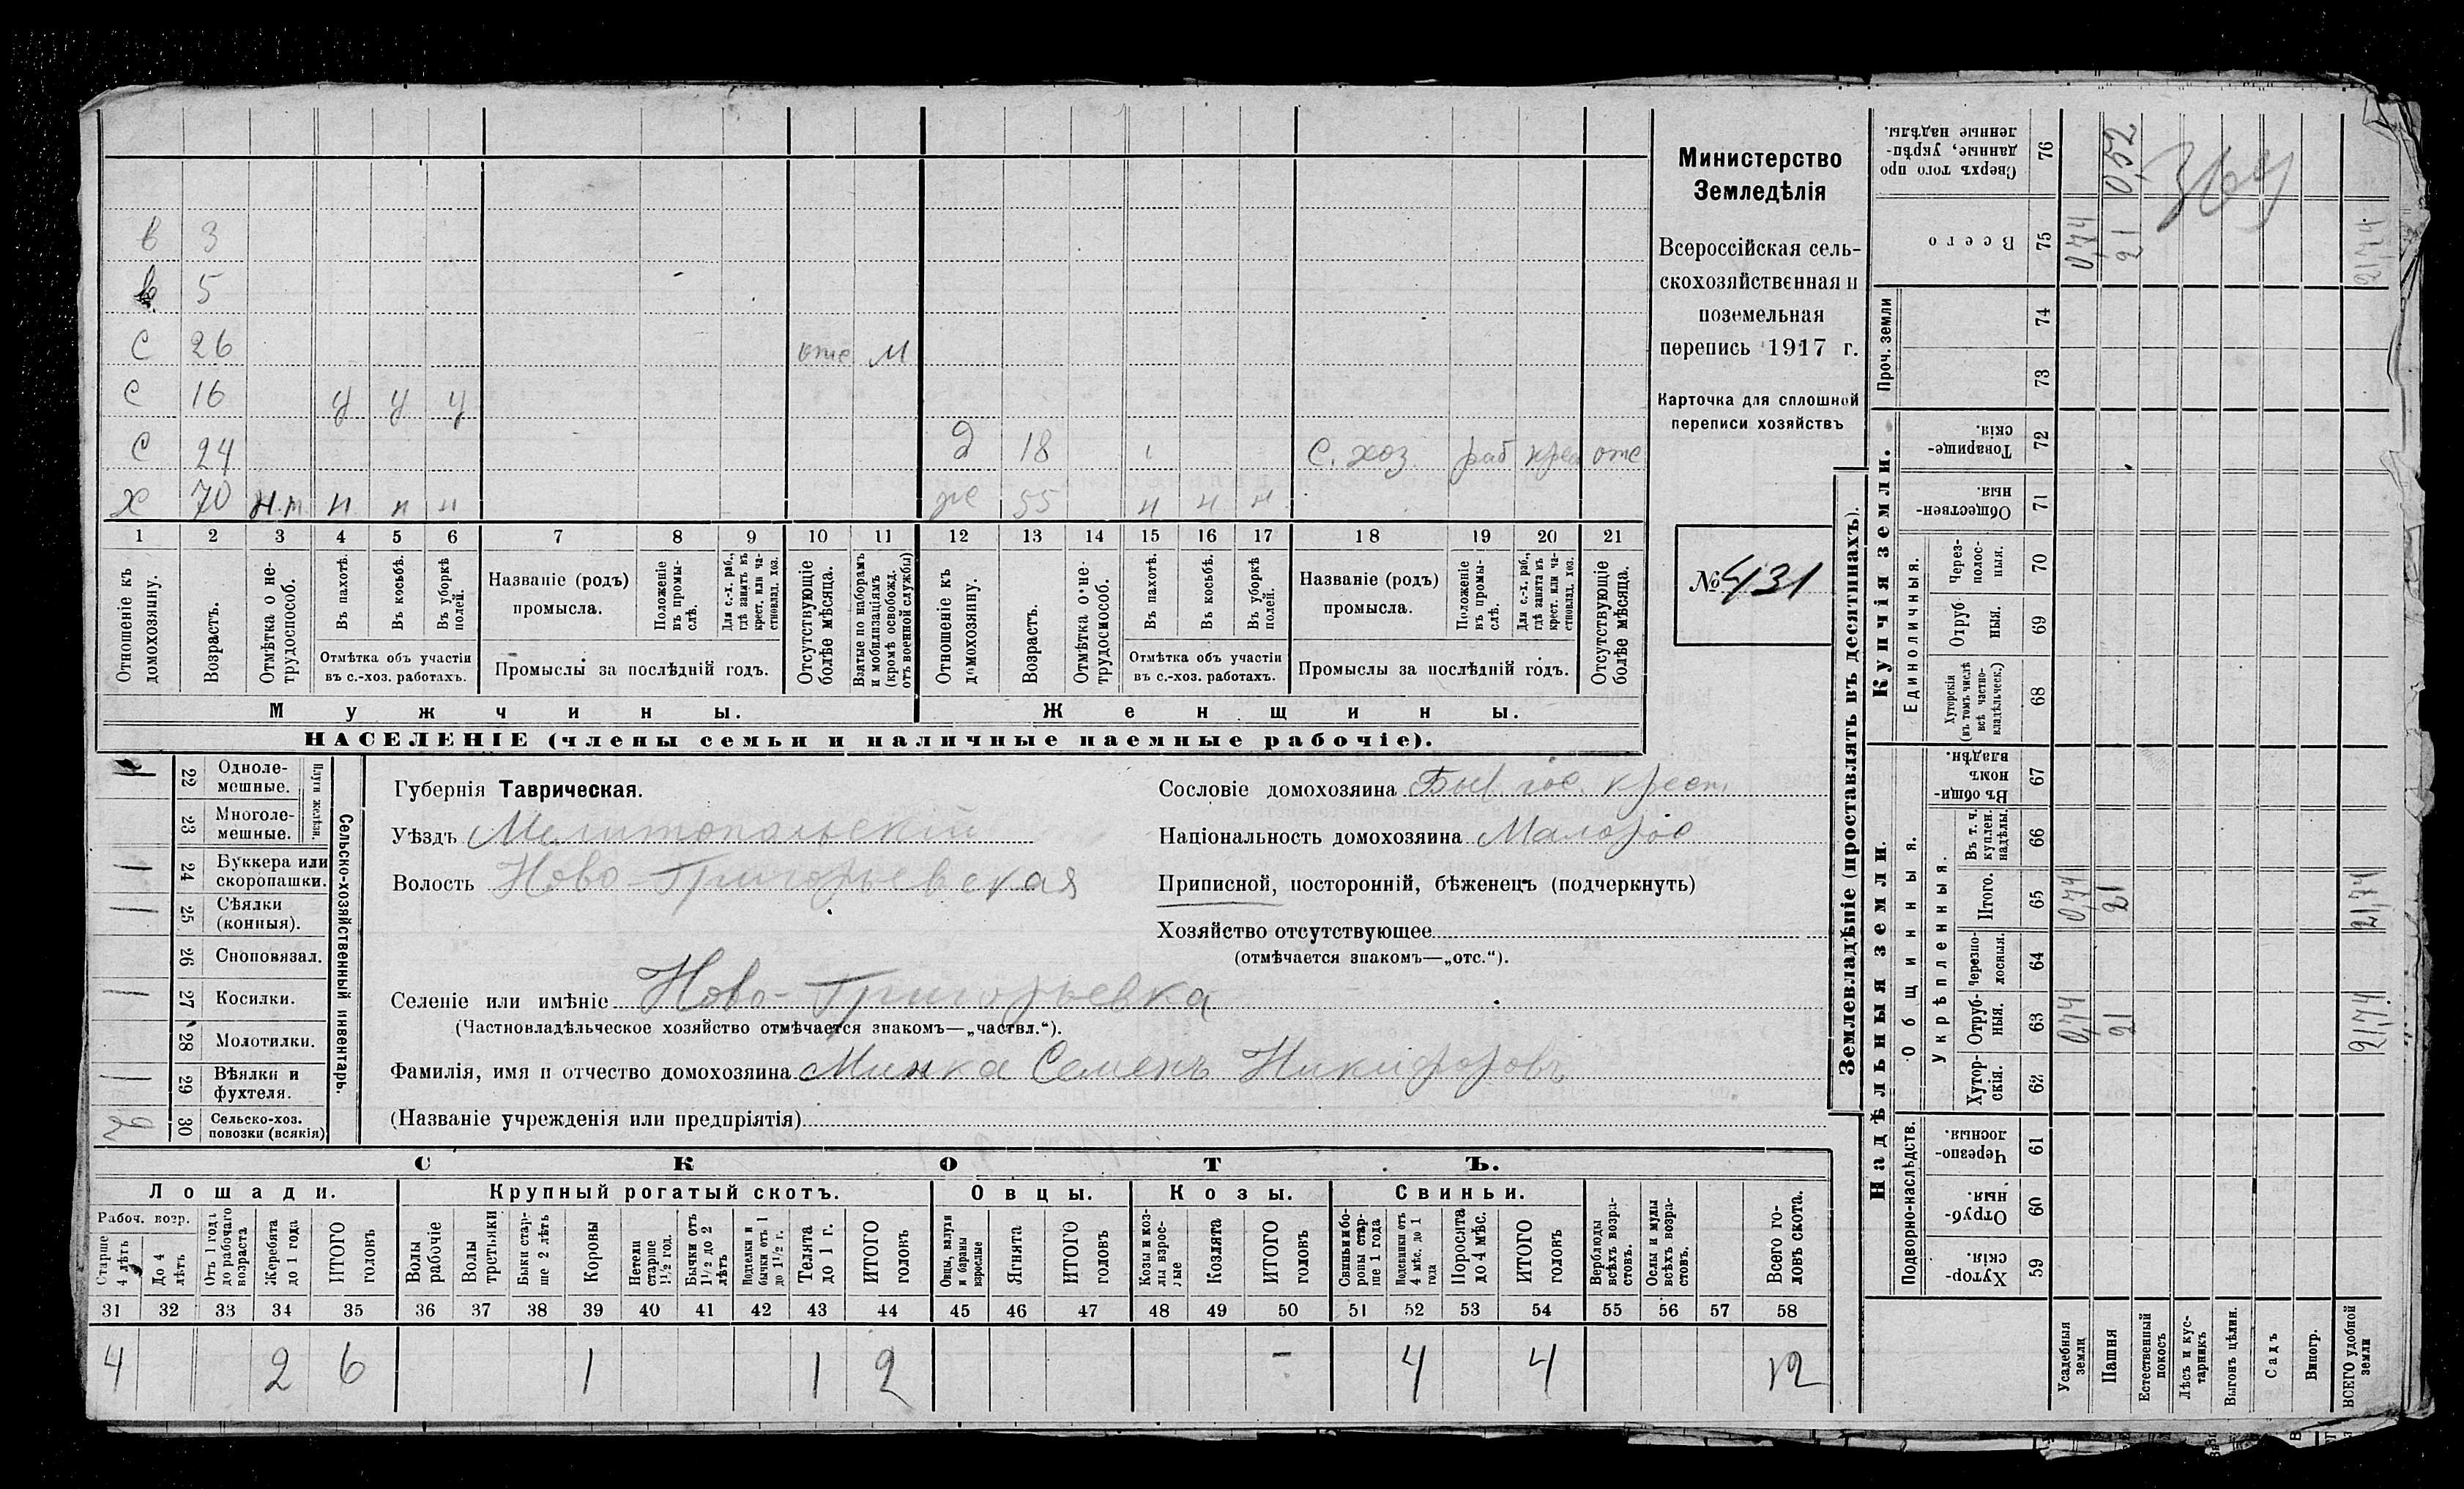 Министерство
Земледѣлія
Всероссійская сель-
скохозяйственная и
поземельная
перепись 1917 г.
Карточка для сплошной
переписи хозяйствъ
№ 431
в 3
в 5
с 26 отс м
с 16 у у у
с 24 д 18 с. хоз. раб крес отс
х 70 н.т. н н н же 55 н н н
1 2 3 4 5 6 7 8 9 10 11 12 13 14 15 16 17 18 19 20 21
Отношеніе къ домохозяину.
Возрастъ.
Отмѣтка о не-трудоспособ.
Въ пахотѣ.
Въ косьбѣ.
Въ уборкѣ полей.
Отмѣтка объ участіи въ с.-хоз. работахъ.
Названіе (родъ) промысла.
Положеніе въ промы-слѣ.
Для с.-х. раб., гдѣ занятъ въ крест. или ча-стновлад. хоз.
Промыслы за послѣдній годъ.
Отсутствующіе болѣе мѣсяца.
Взятые по наборамъ и мобилизаціямъ (кромѣ освобожд. отъ военной службы)
Отношеніе къ домохозяину.
Возрастъ.
Отмѣтка о не-трудоспособ.
Въ пахотѣ.
Въ косьбѣ.
Въ уборкѣ полей.
Отмѣтка объ участіи въ с.-хоз. работахъ.
Названіе (родъ) промысла.
Положеніе въ промы-слѣ.
Для с.-х. раб., гдѣ занята въ крест. или ча-стновлад. хоз.
Промыслы за послѣдній годъ.
Отсутствующіе болѣе мѣсяца.
Мужчины. Женщины.
НАСЕЛЕНІЕ (члены семьи и наличные наемные рабочіе).
Сельско-хозяйственный инвентарь.
Плуги желѣзн.
1 22 Одноле-мешные.
23 Многоле-мешные.
1 24 Буккера или скоропашки.
1 25 Сѣялки (конныя).
26 Сноповязал.
1 27 Косилки.
28 Молотилки.
1 29 Вѣялки и фухтеля.
2 30 Сельско-хоз. повозки (всякія)
Губернія Таврическая.
Уѣздъ Мелитопольскій
Волость Ново-Григорьевская
Сословіе домохозяина Быв. гос. крест.
Національность домохозяина Малорос
Приписной, посторонній, бѣженецъ (подчеркнуть)
Хозяйство отсутствующее
(отмѣчается знакомъ—„отс.“).
Селеніе или имѣніе Ново-Григорьевка
(Частновладѣльческое хозяйство отмѣчается знакомъ—„частвл.“).
Фамилія, имя и отчество домохозяина Минка Семенъ Никифоровъ
(Названіе учрежденія или предпріятія)
СКОТЪ.
Лошади. Крупный рогатый скотъ. Овцы. Козы. Свиньи.
Рабоч. возр.
Старше 4 лѣтъ
До 4 лѣтъ
Отъ 1 года до рабочаго возраста
Жеребята до 1 года
ИТОГО головъ
Волы рабочіе
Волы третьяки
Быки стар-ше 2 лѣтъ
Коровы
Нетели старше 1½ год.
Бычки отъ 1½ до 2 лѣтъ
Подтелки и бычки отъ 1 до 1½ г.
Телята до 1 г.
ИТОГО головъ
Овцы, валухи и бараны взрослые
Ягнята
ИТОГО головъ
Козы и коз-лы взрос-лые
Козлята
ИТОГО головъ
Свиньи и бо-ровы стар-ше 1 года
Подсвинки отъ 4 мѣс. до 1 года
Поросята до 4 мѣс.
ИТОГО головъ
Верблюды всѣхъ возра-стовъ.
Ослы и мулы всѣхъ возра-стовъ.
Всего го-ловъ скота.
31 32 33 34 35 36 37 38 39 40 41 42 43 44 45 46 47 48 49 50 51 52 53 54 55 56 57 58
4 2 6 1 1 2 - 4 4 12
Землевладѣніе (проставлять въ десятинахъ).
Надѣльныя земли. Купчія земли. Проч. земли
Подворно-наслѣдств.
Общинныя.
Укрѣпленныя.
Единоличныя.
Хутор-скія. 59
Отруб-ныя. 60
Черезпо-лосныя. 61
Хутор-скія. 62
Отруб-ныя. 63 0,74 21 21,74
Черезпо-лосныя. 64
Итого. 65 0,74 21 21,74
Въ т. ч. куплен. надѣлы. 66
Въ общи-номъ владѣн. 67
Хуторскія (въ томъ числѣ всѣ частно-владѣльческ.) 68
Отруб-ныя. 69
Через-полос-ныя. 70
Обществен-ныя. 71
Товарище-скія. 72
73
74
Всего 75 0,74 21 21,74
Сверхъ того про-данные, укрѣп-ленные надѣлы. 76 0,52
Усадебныя земли
Пашня
Естественный покосъ
Лѣсъ и кус-тарникъ
Выгонъ цѣлин.
Садъ
Виногр.
ВСЕГО удобной земли